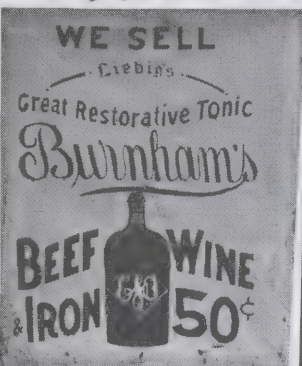 WE SELL
Liebig's
Great Restorative Tonic
Burnham's
BEEF WINE
& IRON 50¢